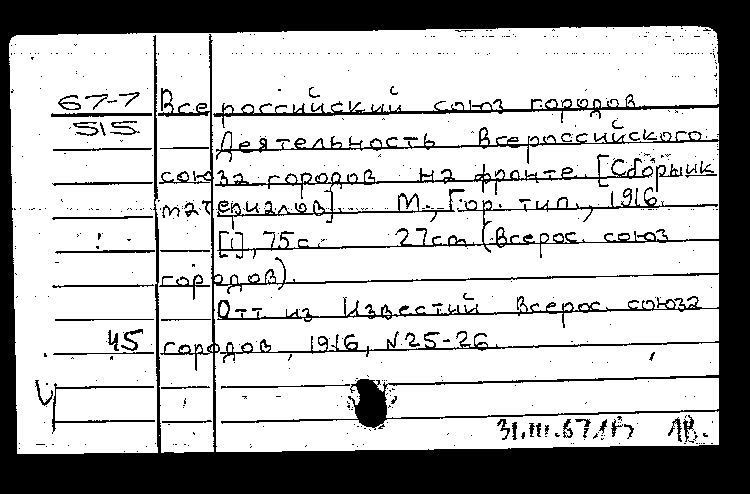 67-7 Всероссийский союз городов.
515
Деятельность Всероссийского
союза городов на фронте. [Сборник
материалов]. М., Гор. тип., 1916.
[1], 75 с. 27 cm (Всерос. союз
городов).
Отт. из Известий Всерос. союза
45 городов, 1916, N 25-26.
31.III.67 1В.